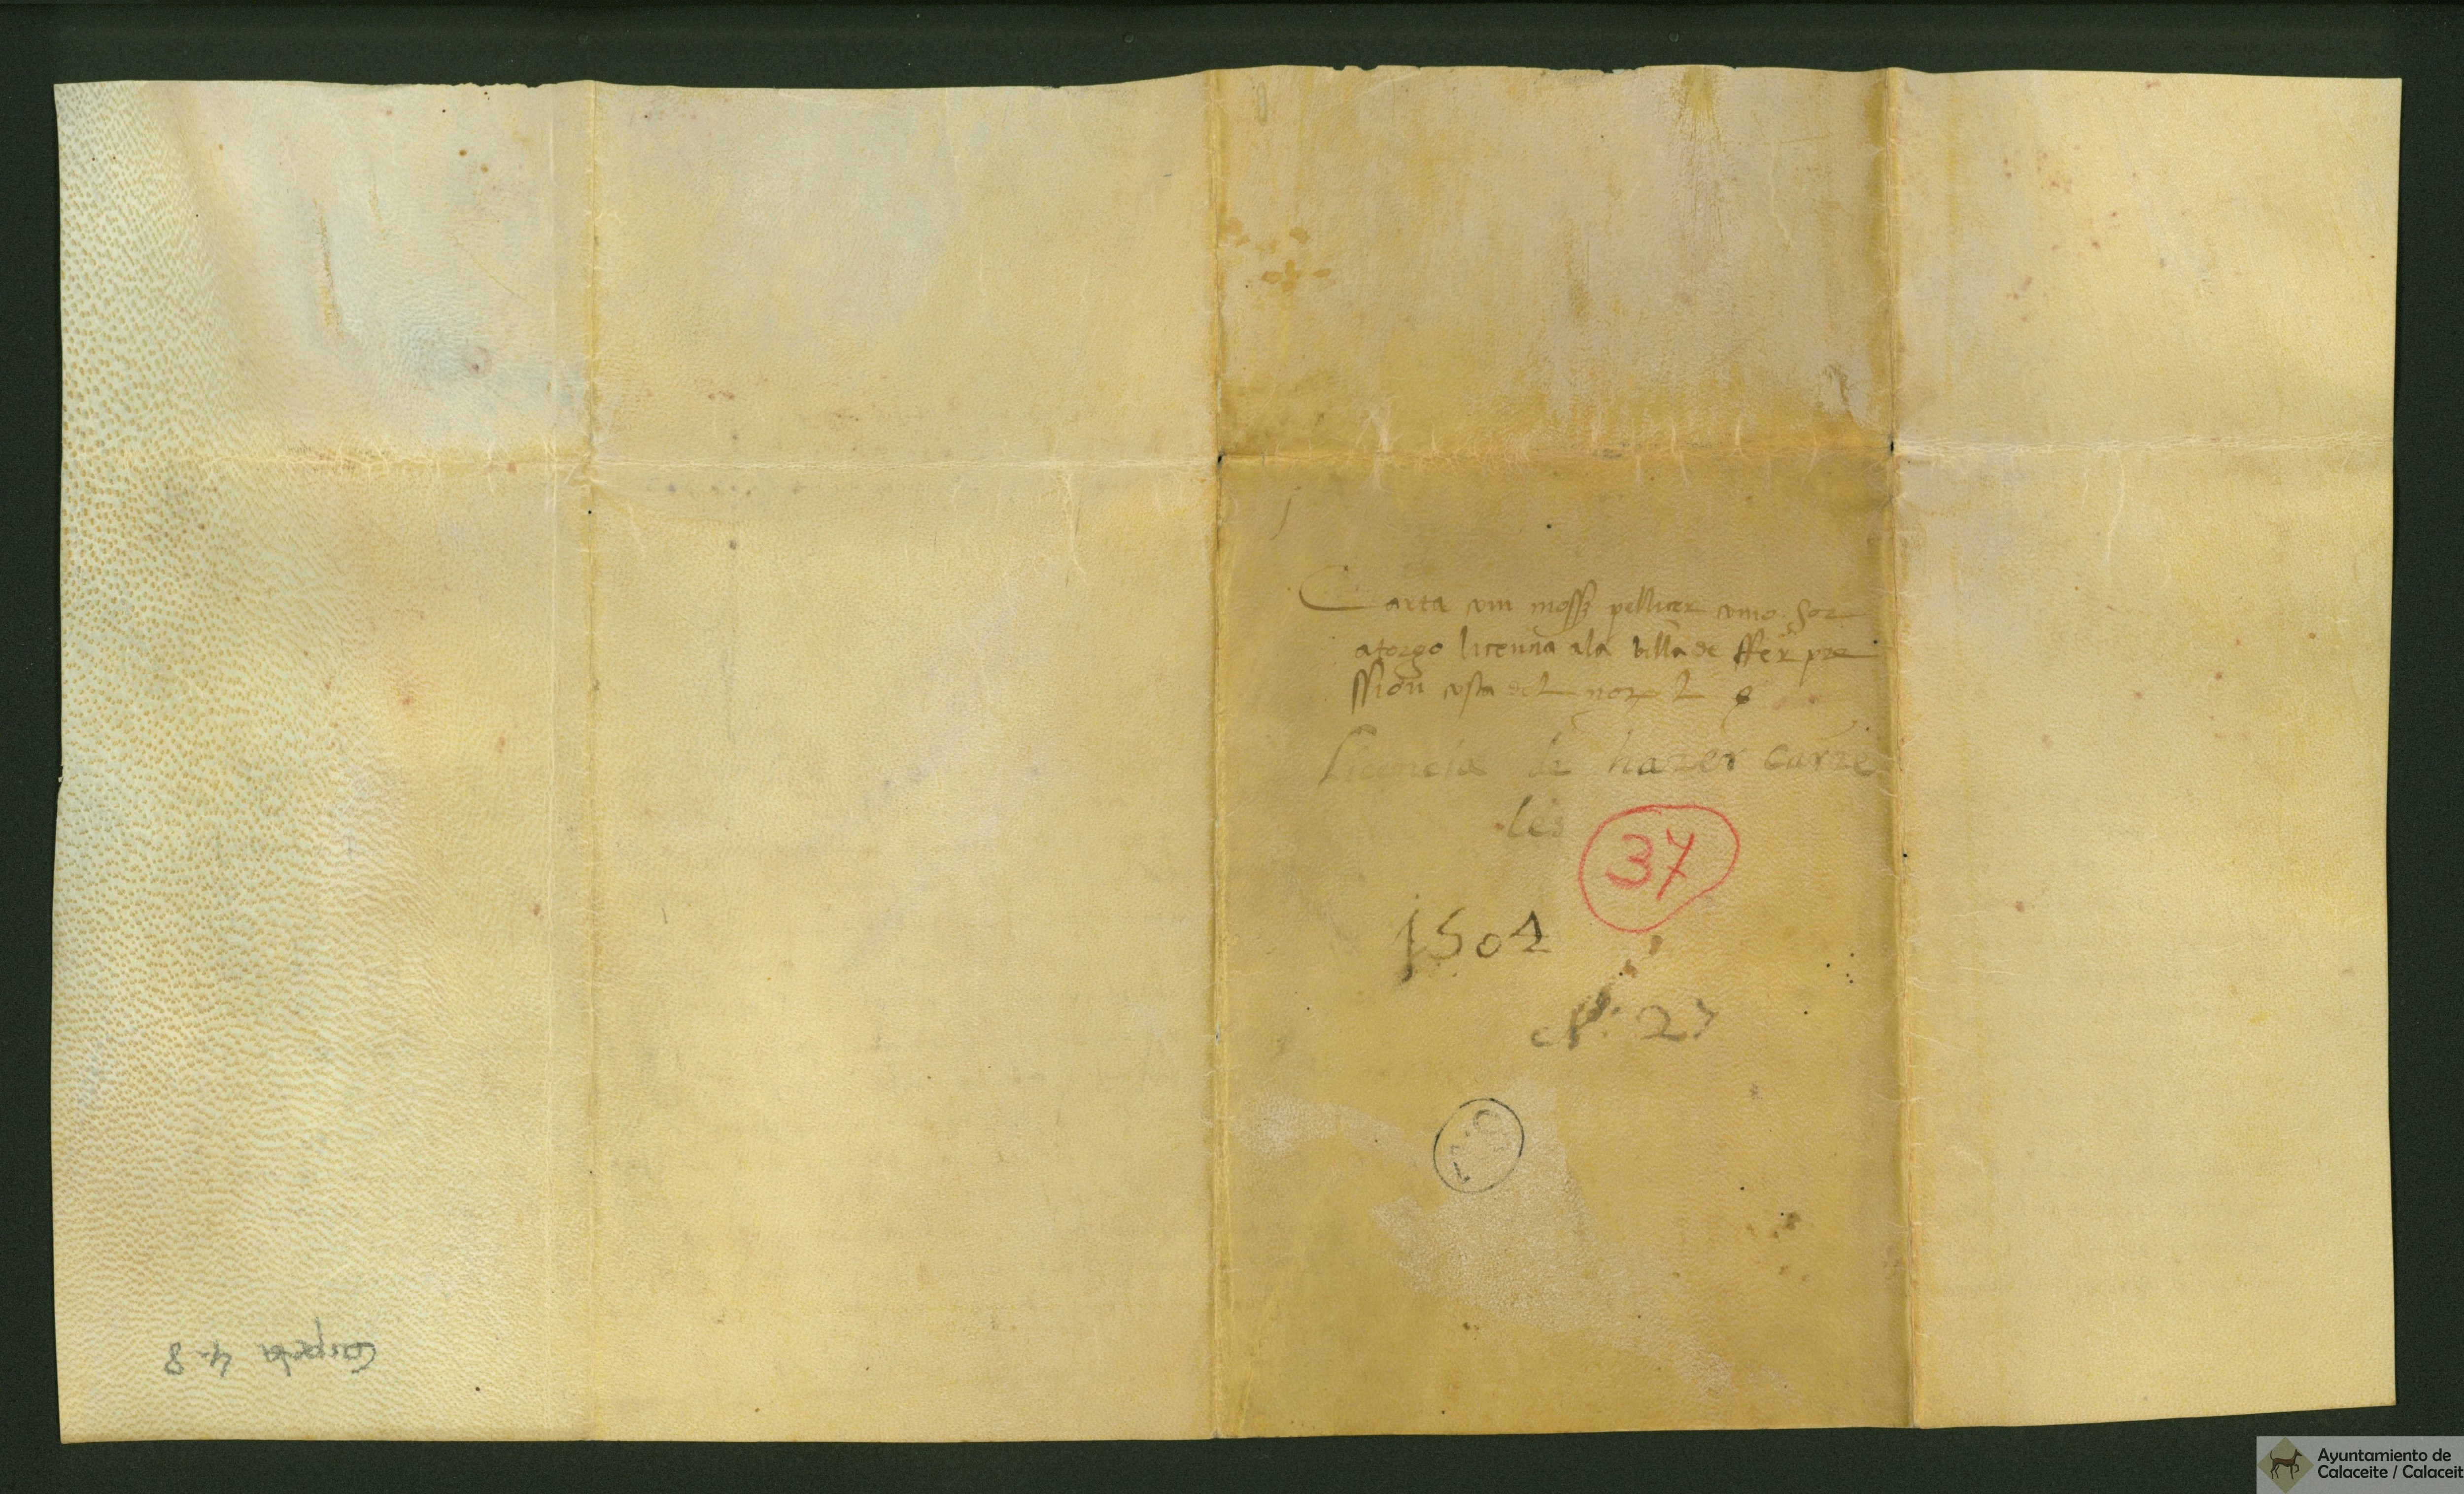 Carta com mossen pellicer como Sor
atorgo licencia ala billa de ffer pre
ssion costa del
Licencia de hazer carce
les
37
1504
N: 27
Carpeta 4-8
Ayuntamiento de
Calaceite / Calaceit